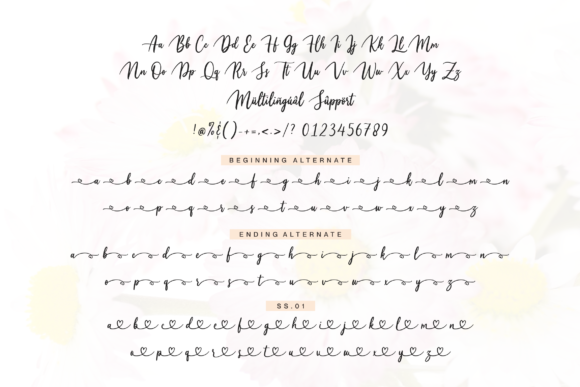 Aa Bb Cc Dd Ee Ff Gg Hh Ii Jj Kk Ll Mm
Nn Oo Pp Qq Rr Ss Tt Uu Vv Ww Xx Yy Zz
Mültilingúâl Sûppört
!@%&()-+=,<.>/? 0123456789
BEGINNING ALTERNATE
a b c d e f g h i j k l m n
o p q r s t u v w x y z
ENDING ALTERNATE
a b c d e f g h i j k l m n
o p q r s t u v w x y z
SS.01
a b c d e f g h i j k l m n
o p q r s t u v w x y z